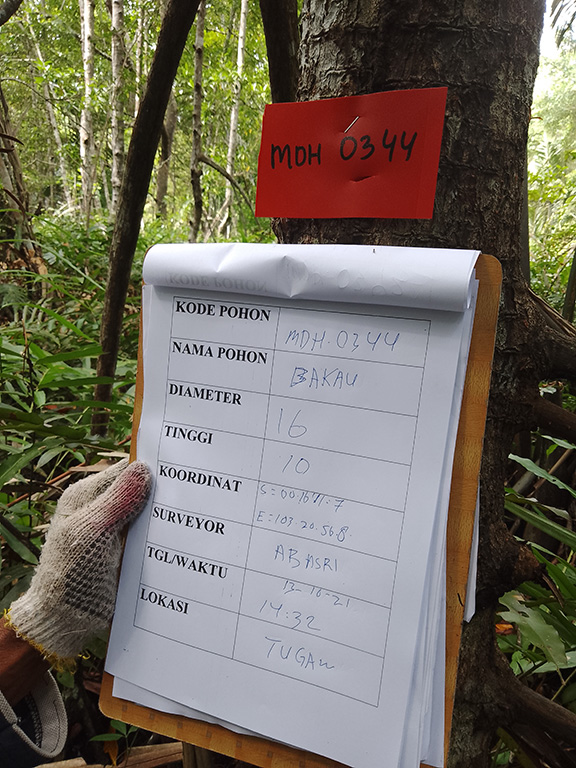 MDH 0344
KODE POHON MDH.0344
NAMA POHON BAKAU
DIAMETER 16
TINGGI 10
KOORDINAT
E=103.20.568.
SURVEYOR ABASRI
TGL/WAKTU 13-10-21
14:32
LOKASI